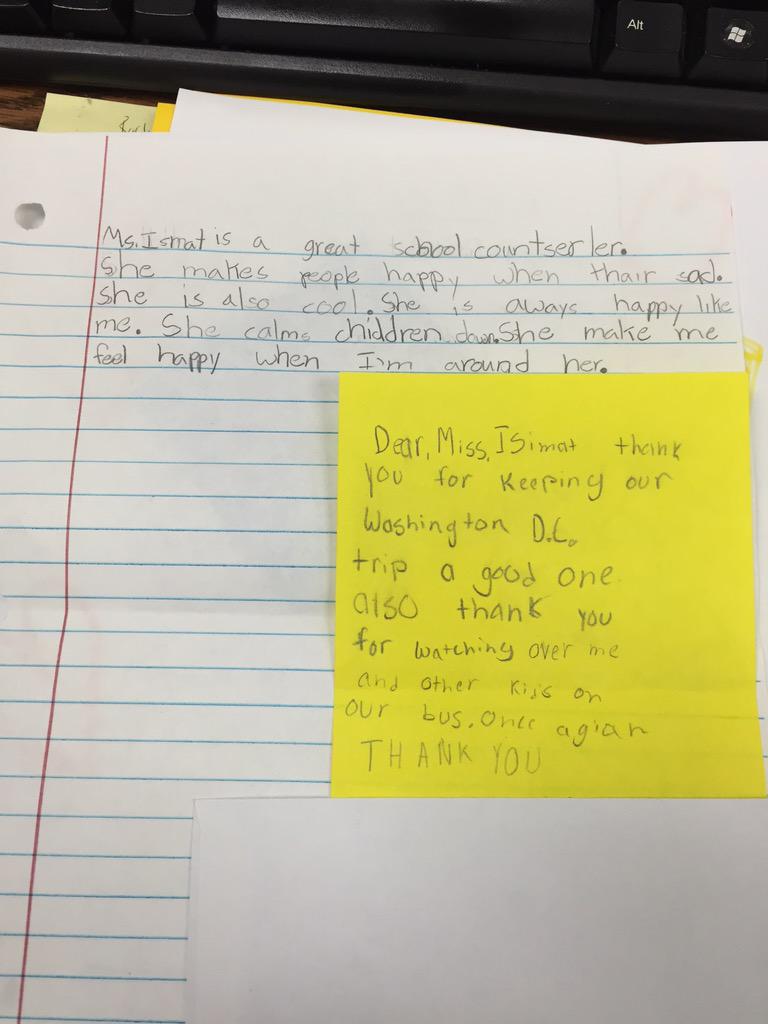 Alt
Ms. Ismat is a great school countserler.
She makes people happy when thair sad.
She is also cool. She is aways happy like
me. She calms children down. She make me
feel happy when I'm around her.
Dear, Miss, ISimat thank
you for keeping our
Washington D.C.
trip a good one.
also thank you
for watching over me
and other kids on
our bus. Once agian
THANK YOU